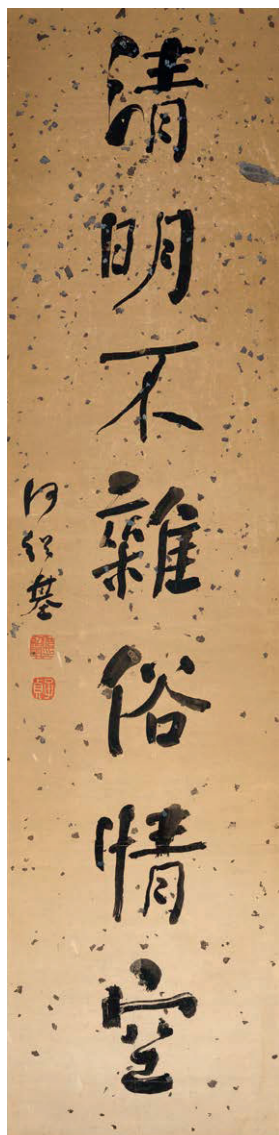 清明不雜俗情空
何紹基